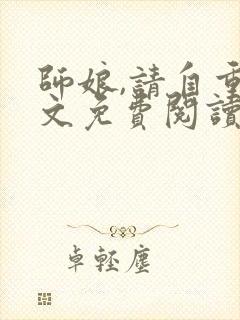 師娘,請自重
文免費閱讀
卓輕塵